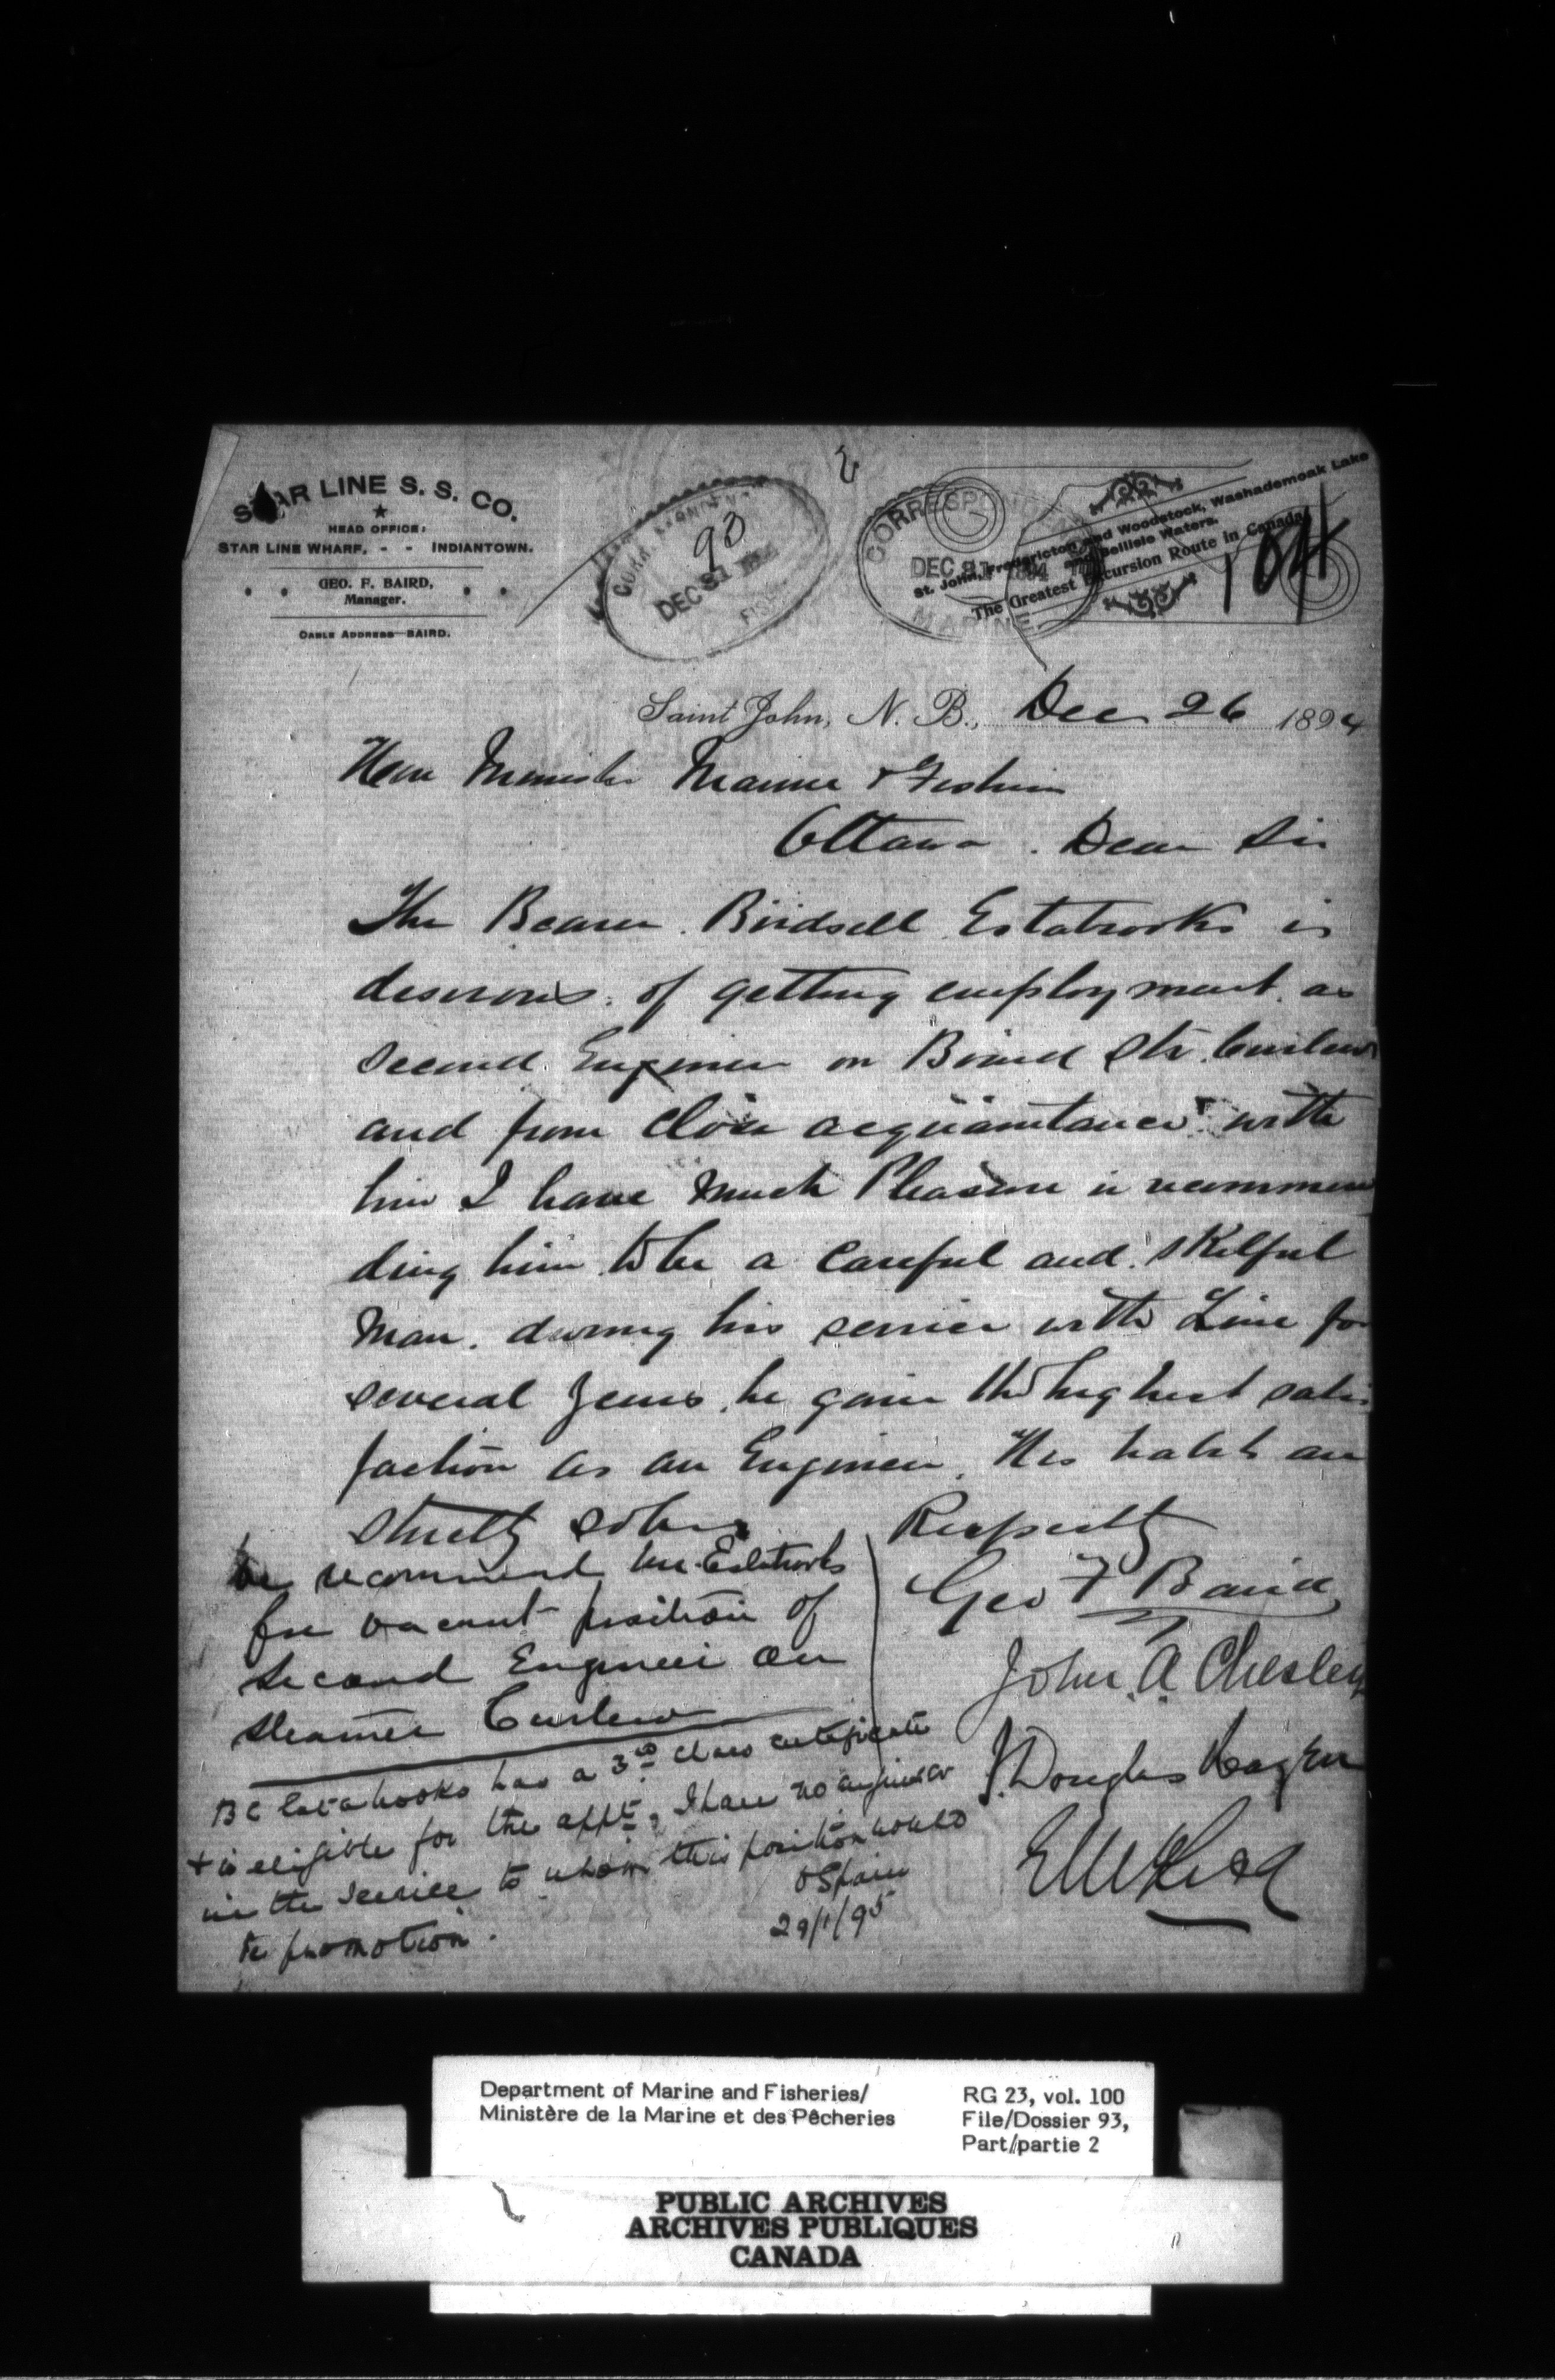 STAR LINE S. S. CO.
HEAD OFFICE:
STAR LINE WHARF, - - INDIANTOWN.
GEO. F. BAIRD,
Manager.
CABLE ADDRESS—BAIRD.
CORRESPONDENCE
93
DEC 31 1894
FISH
CORRESPONDENCE
DEC 31 1894
MARINE
St. John, Fredericton and Woodstock, Washademoak Lake
and Bellisle Waters.
The Greatest Excursion Route in Canada
104
Saint John, N. B., Dec 26 1894
Hon Minister Marine & Fisheries
Ottawa. Dear Sir
The Bearer. Birdsell Estabrooks is
desirous of getting employment as
second Engineer on Board Str. Curlew
and from close acquaintance with
him I have much Pleasure in recommen
ding him to be a careful and skilful
Man. during his service with Line for
several years he gave the highest satis
faction as an Engineer. His habits are
strictly sober
Respectly
Geo F Baird
John A. Chesley
J. Douglas Hazen
We recommend Mr. Estabrooks
for vacant position of
Second Engineer on
Steamer Curlew
B E Estabrooks has a 3rd class certificate
+ is eligible for the appt, I have no engineer
in the service to whom this position would
be promotion.
OSpain
29/1/95
Department of Marine and Fisheries/
Ministère de la Marine et des Pêcheries
RG 23, vol. 100
File/Dossier 93,
Part/partie 2
PUBLIC ARCHIVES
ARCHIVES PUBLIQUES
CANADA